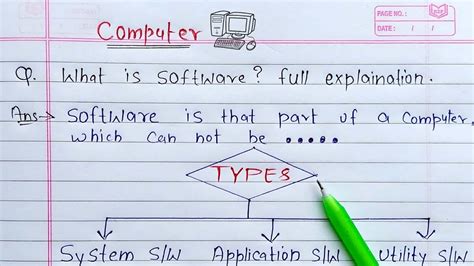 PAGE NO.:
DATE: / /
Computer
Q. What is software? full explaination.
Ans→ Software is that part of a computer,
which can not be •••••
TYPES
System S/W Application S/W Utility S/W